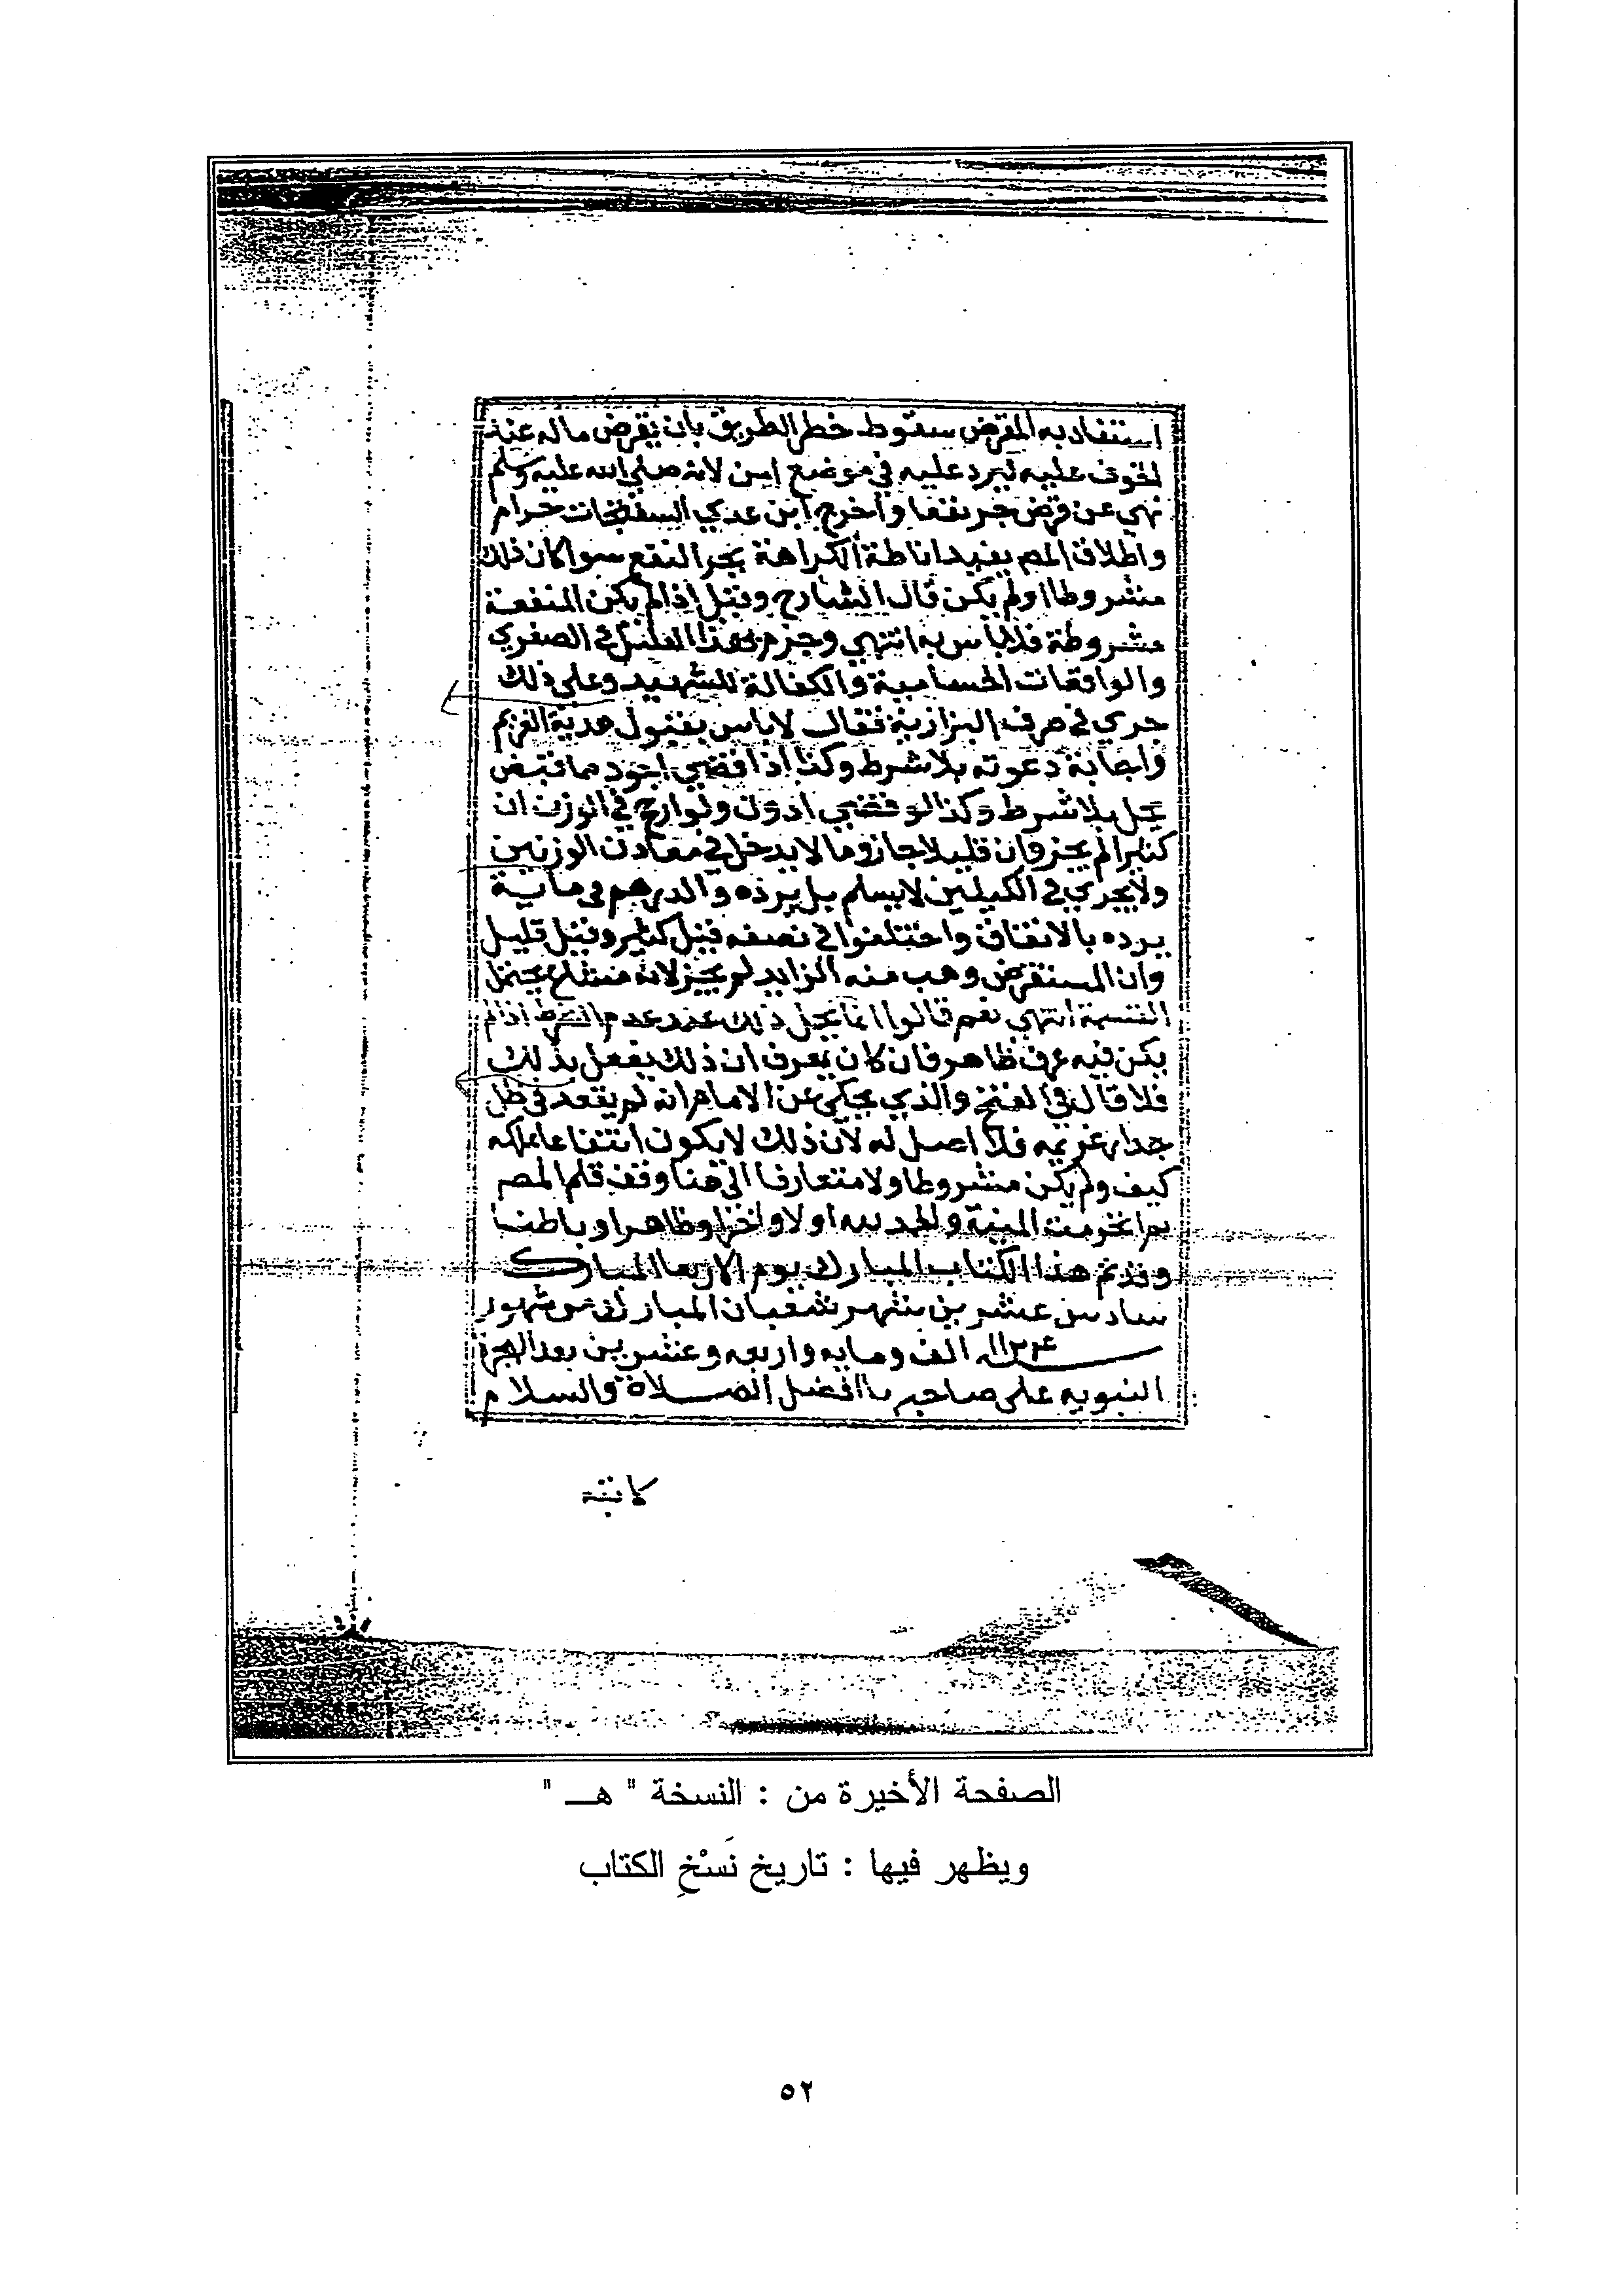 استفاد به المقرض سقوط خطر الطريق بان يقرض ماله عند
الخوف عليه ليرد عليه في موضع امن لانه صلى الله عليه وسلم
نهي عن قرض جر نفعا واخرج ابن عدي السفتجات حرام
واطلاق المص يفيد اناطة الكراهة بجر النفع سوا كان ذلك
مشروطا اولم يكن قال الشارح وقيل اذا لم يكن المنفعة
مشروطة فلا باس به انتهي وجزم بهذا في الصغري
والواقعات الحسامية والكفالة للشهيد وعلي ذلك
جري في صرف البزازية فقال لا باس بقبول هدية الغريم
واجابة دعوته بلا شرط وكذا اذا قضي اجود مما قبض
يحل بلا شرط وكذا لو قضي ادون ولو ارجح في الوزن ان
كثيرا لم يجز وان قليلا جاز وما لا يدخل في الوزنين
ولا يجري في الكيلين لا يسلم بل يرده والدرهم في ماية
يرده بالاتفاق واختلفوا في نصفه قيل كثير وقيل قليل
وان المستقرض وهب منه الزايد لم يجز لانه مشاع يحتمل
القسمة انتهي نعم قالوا انما يحل ذلك عند عدم الشرط اذا لم
يكن فيه عرف ظاهر فان كان يعرف ان ذلك يفعل بذلك
فلا قال في الفتح والذي يحكي عن الامام انه لم يقعد في ظل
جدار غريمه فلا اصل له لان ذلك لا يكون انتفاعا بملكه
كيف ولم يكن مشروطا ولا متعارفا الي هنا وقف قلم المص
المنية والحمد لله اولا واخرا وظاهرا وباطنا
وقد تم هذا الكتاب المبارك يوم الاربعا المبارك
سادس عشرين شهر شعبان المبارك من شهور
١١٢٤ الف ومايه واربعه وعشرين بعد الهجرة
النبويه علي صاحبها افضل الصلاة والسلام
كاتبه
الصفحة الأخيرة من : النسخة " هـ "
ويظهر فيها : تاريخ نَسْخِ الكتاب
٥٢